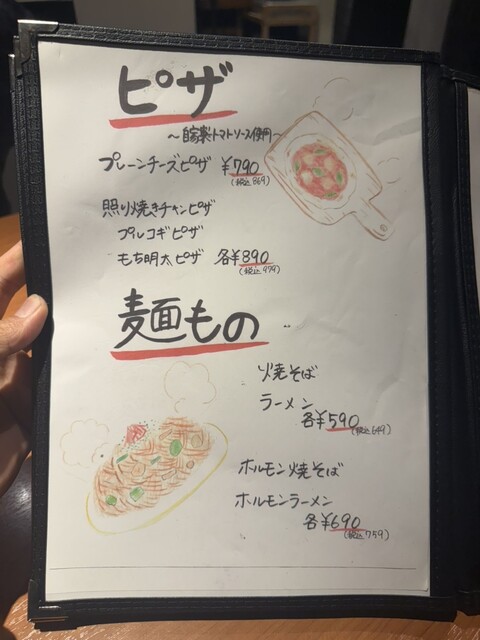 ピザ
〜自家製トマトソース使用〜
プレーンチーズピザ ¥790
(税込869)
照り焼きチキンピザ
プルコギピザ
もち明太ピザ 各¥890
(税込979)
麺もの
焼そば
ラーメン
各¥590(税込649)
ホルモン焼そば
ホルモンラーメン
各¥690
(税込759)